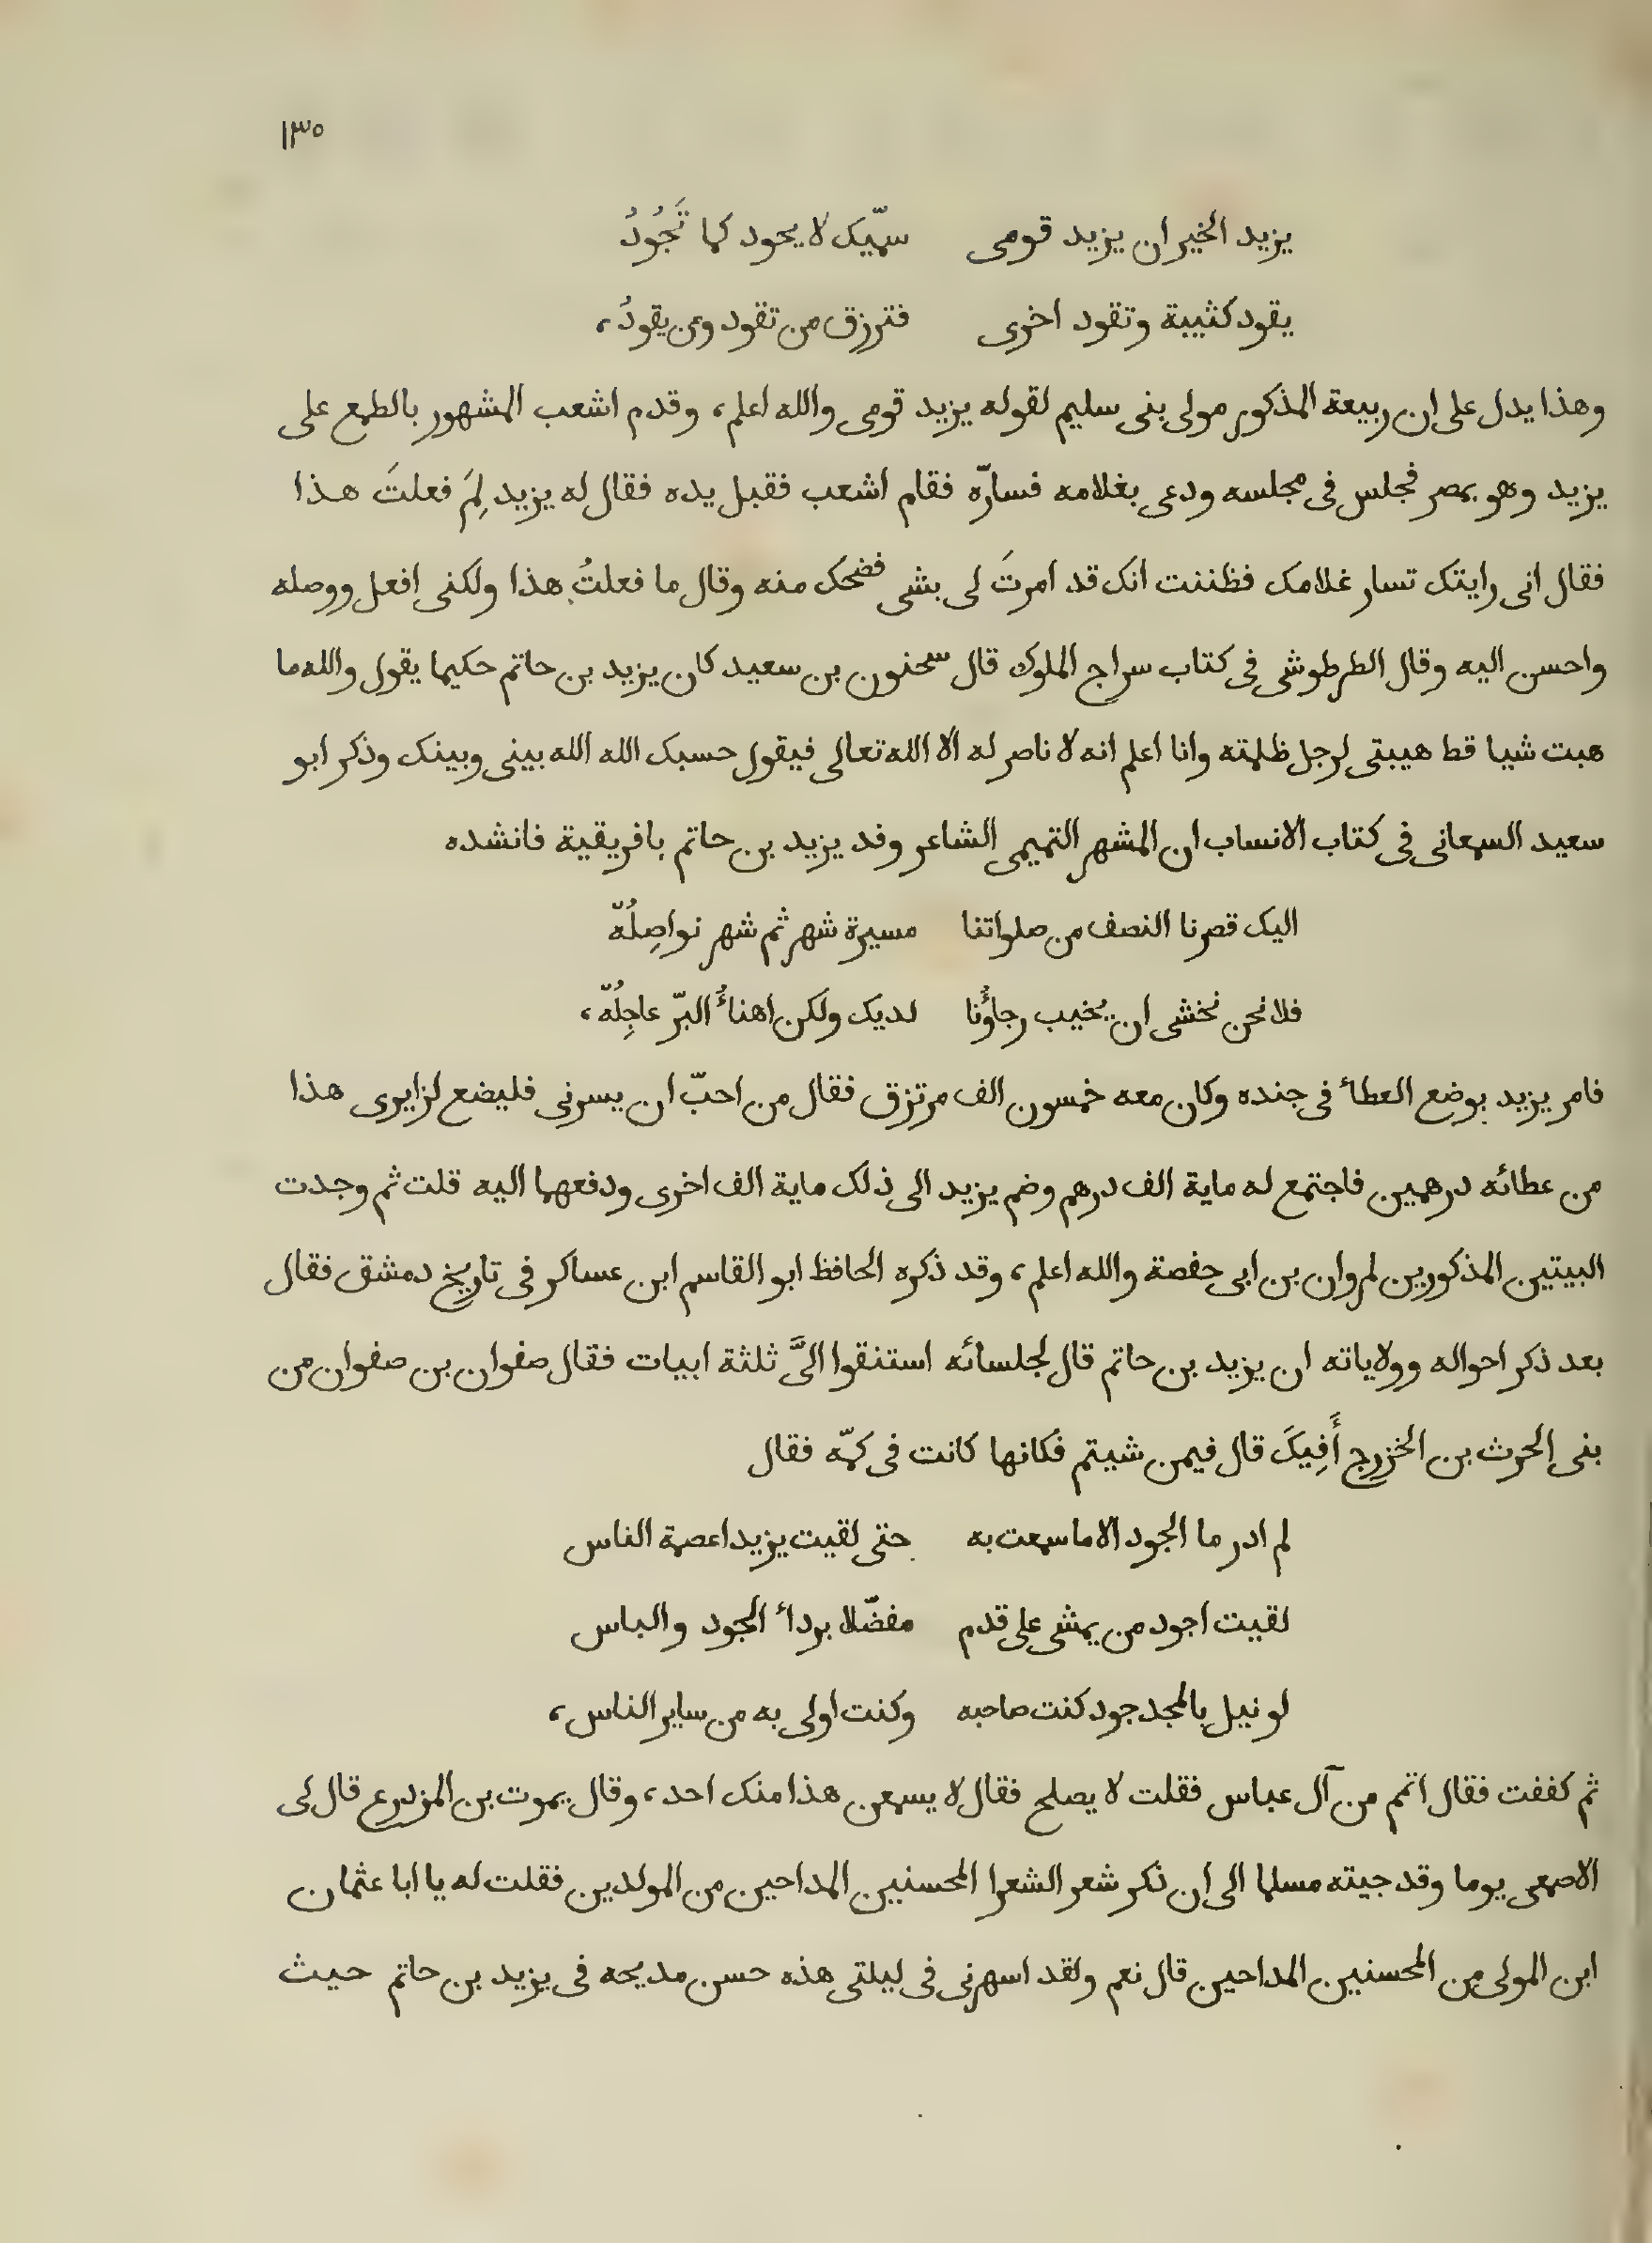 ١٣٥
يزيد الخير ان يزيد قومى سميّك لا يجود كما تَجُودُ
يقود كثيبة وتقود اخرى فترزق من تقود ومن يقودُ،
وهذا يدل على ان ربيعة المذكور مولى بنى سليم لقوله يزيد قومى والله اعلم، وقدم اشعب المشهور بالطمع على
يزيد وهو بمصر فجلس فى مجلسه ودعى بغلامه فسارّه فقام اشعب فقبل يده فقال له يزيد لِمَ فعلتَ هذا
فقال انى رايتك تسار غلامك فظننت انك قد امرتَ لى بشى فضحك منه وقال ما فعلتُ هذا ولكنى افعل ووصله
واحسن اليه وقال الطرطوشى فى كتاب سراج الملوك قال سحنون بن سعيد كان يزيد بن حاتم حكيما يقول والله ما
هبت شيا قط هيبتى لرجل ظلمته وانا اعلم انه لا ناصر له الا الله تعالى فيقول حسبك الله الله بينى وبينك وذكر ابو
سعيد السمعانى فى كتاب الانساب ان المشهر التميمى الشاعر وفد يزيد بن حاتم بافريقية فانشده
اليك قصرنا النصف من صلواتنا مسيرة شهر ثم شهر نواصِلُهّ
فلا نحن نخشى ان يخيب رجاؤُنا لديك ولكن اهناءُ البرّ عاجِلُهّ،
فامر يزيد بوضع العطاء فى جنده وكان معه خمسون الف مرتزق فقال من احبّ ان يسرنى فليضع لزايرى هذا
من عطائه درهمين فاجتمع له ماية الف درهم وضم يزيد الى ذلك ماية الف اخرى ودفعها اليه قلت ثم وجدت
البيتين المذكورين لمروان بن ابى حفصة والله اعلم، وقد ذكره الحافظ ابو القاسم ابن عساكر فى تاريخ دمشق فقال
بعد ذكر احواله وولاياته ان يزيد بن حاتم قال لجلسائه استنقوا الىَّ ثلثة ابيات فقال صفوان بن صفوان من
بنى الحرث بن الخزرج أَفِيكَ قال فيمن شيتم فكانها كانت فى كمّه فقال
لم ادر ما الجود الا ما سمعت به حتى لقيت يزيد اعصمة الناس
لقيت اجود من يمشى على قدم مفضّلا برداء الجود والباس
لو نيل بالمجد جود كنت صاحبه وكنت اولى به من ساير الناس،
ثم كففت فقال اتمم من آل عباس فقلت لا يصلح فقال لا يسمعن هذا منك احد، وقال يموت بن المزدرع قال لى
الاصمعى يوما وقد جيته مسلما الى ان ذكر شعر الشعرا المحسنين المداحين من المولدين فقلت له يا ابا عثمان
ابن المولى من المحسنين المداحين قال نعم ولقد اسهرنى فى ليلتى هذه حسن مديحه فى يزيد بن حاتم حيث